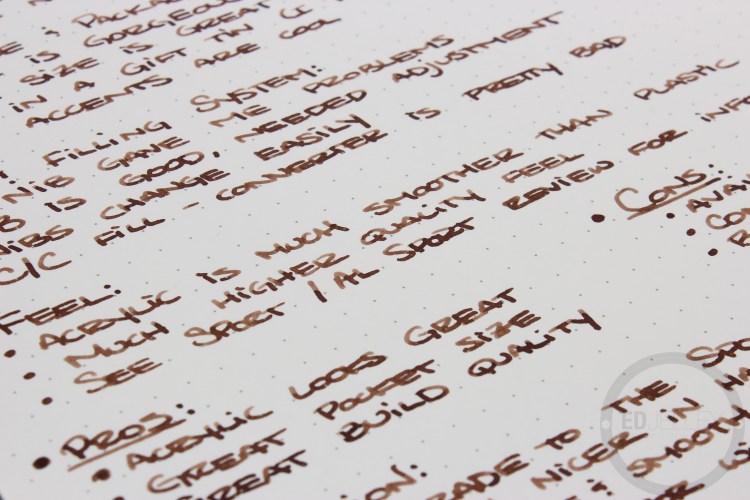 PACKAG
IS GORGEOUS
SIZE IS GREAT
IN A GIFT TIN
ACCENTS ARE COOL
FILLING SYSTEM:
NIB GAVE ME PROBLEMS
IS GOOD, NEEDED ADJUSTMENT
NIBS CHANGE EASILY
C/C FILL - CONVERTER IS PRETTY BAD
FEEL:
• ACRYLIC IS MUCH SMOOTHER THAN PLASTIC
• MUCH HIGHER QUALITY FEEL
• SEE SPORT / AL SPORT REVIEW FOR INF
• PROS:
• ACRYLIC LOOKS GREAT
GREAT POCKET SIZE
GREAT BUILD QUALITY
• CONS:
• AVAI
• CO
•
ON:
RADE TO THE SPO
NICER IN HA
SMOOTH
ED